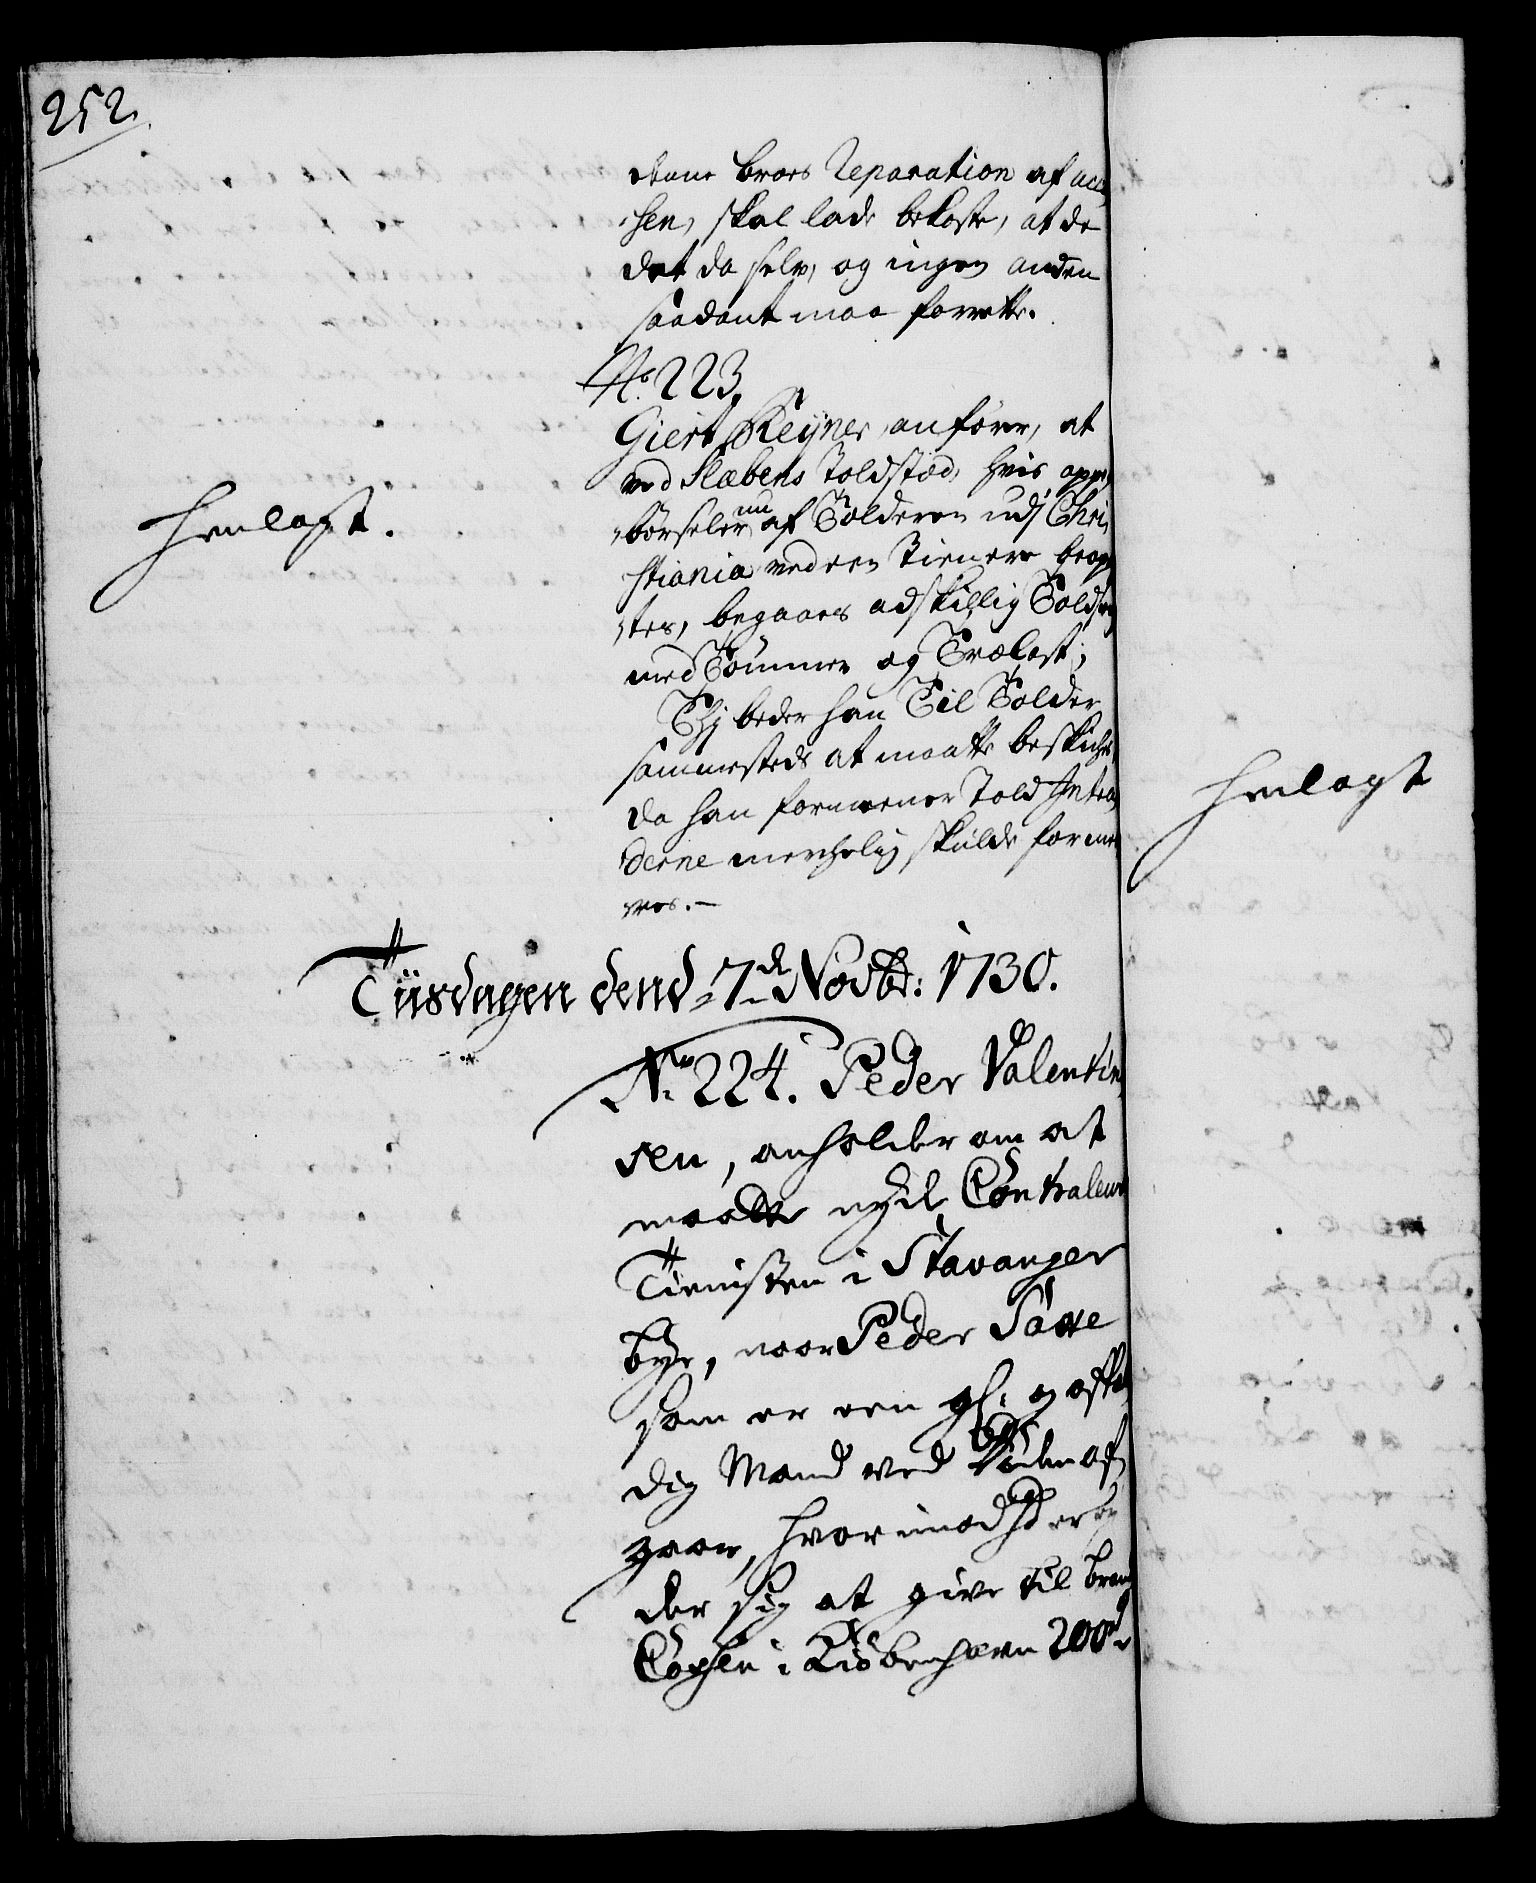 252.
denne broes Reparation af acci
sen, skal lade bekoste, at de
det da selv, og ingen anden
saadant maa forrette.
No. 223.
Giert Reyner, anfører, at
ved Slæbens Toldstæd, hvis oppe,
børseler nu af Tolderen udj Chri,
stiania ved een Tienere beopt
tes, begaaes adskillig
med Tømmer og Trælast;
Thj beder han Til Tolder
sammesteds at maatte beskiches,
da han formeener Told Intra
derne merchelig skulde forme
res.
Henlagt.
Tiisdagen dend 7de Novbr: 1730.
No 224. Peder Valentin
sen, anholder om at
maatte nyde Contraleur
Tienisten i Stavanger
bye, naar Peder
som er een gl: og affæl
dig Mand ved Døden af,
gaar, hvorimod hand er
der sig at give til
Cassen i Kiøbenhavn 200 rd
Henlagt